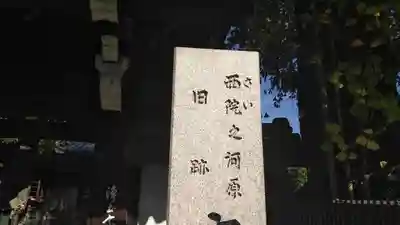 西院之河原
さい
旧跡